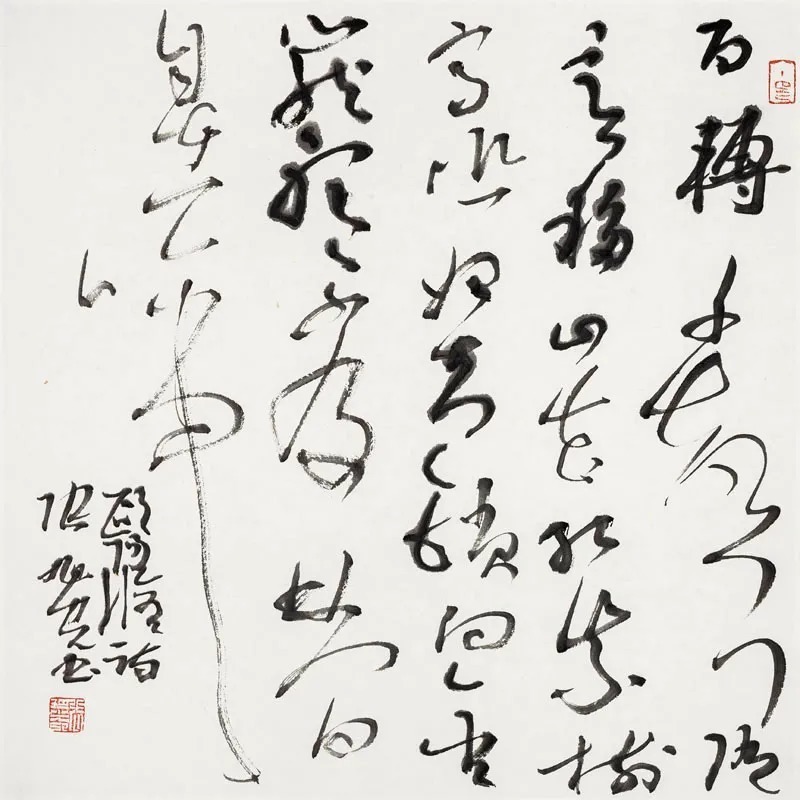 百轉千聲随
意移山花紅紫樹
高低始知鎖向金
籠聽不及林間
自在啼
歐陽修詩
張旭光書